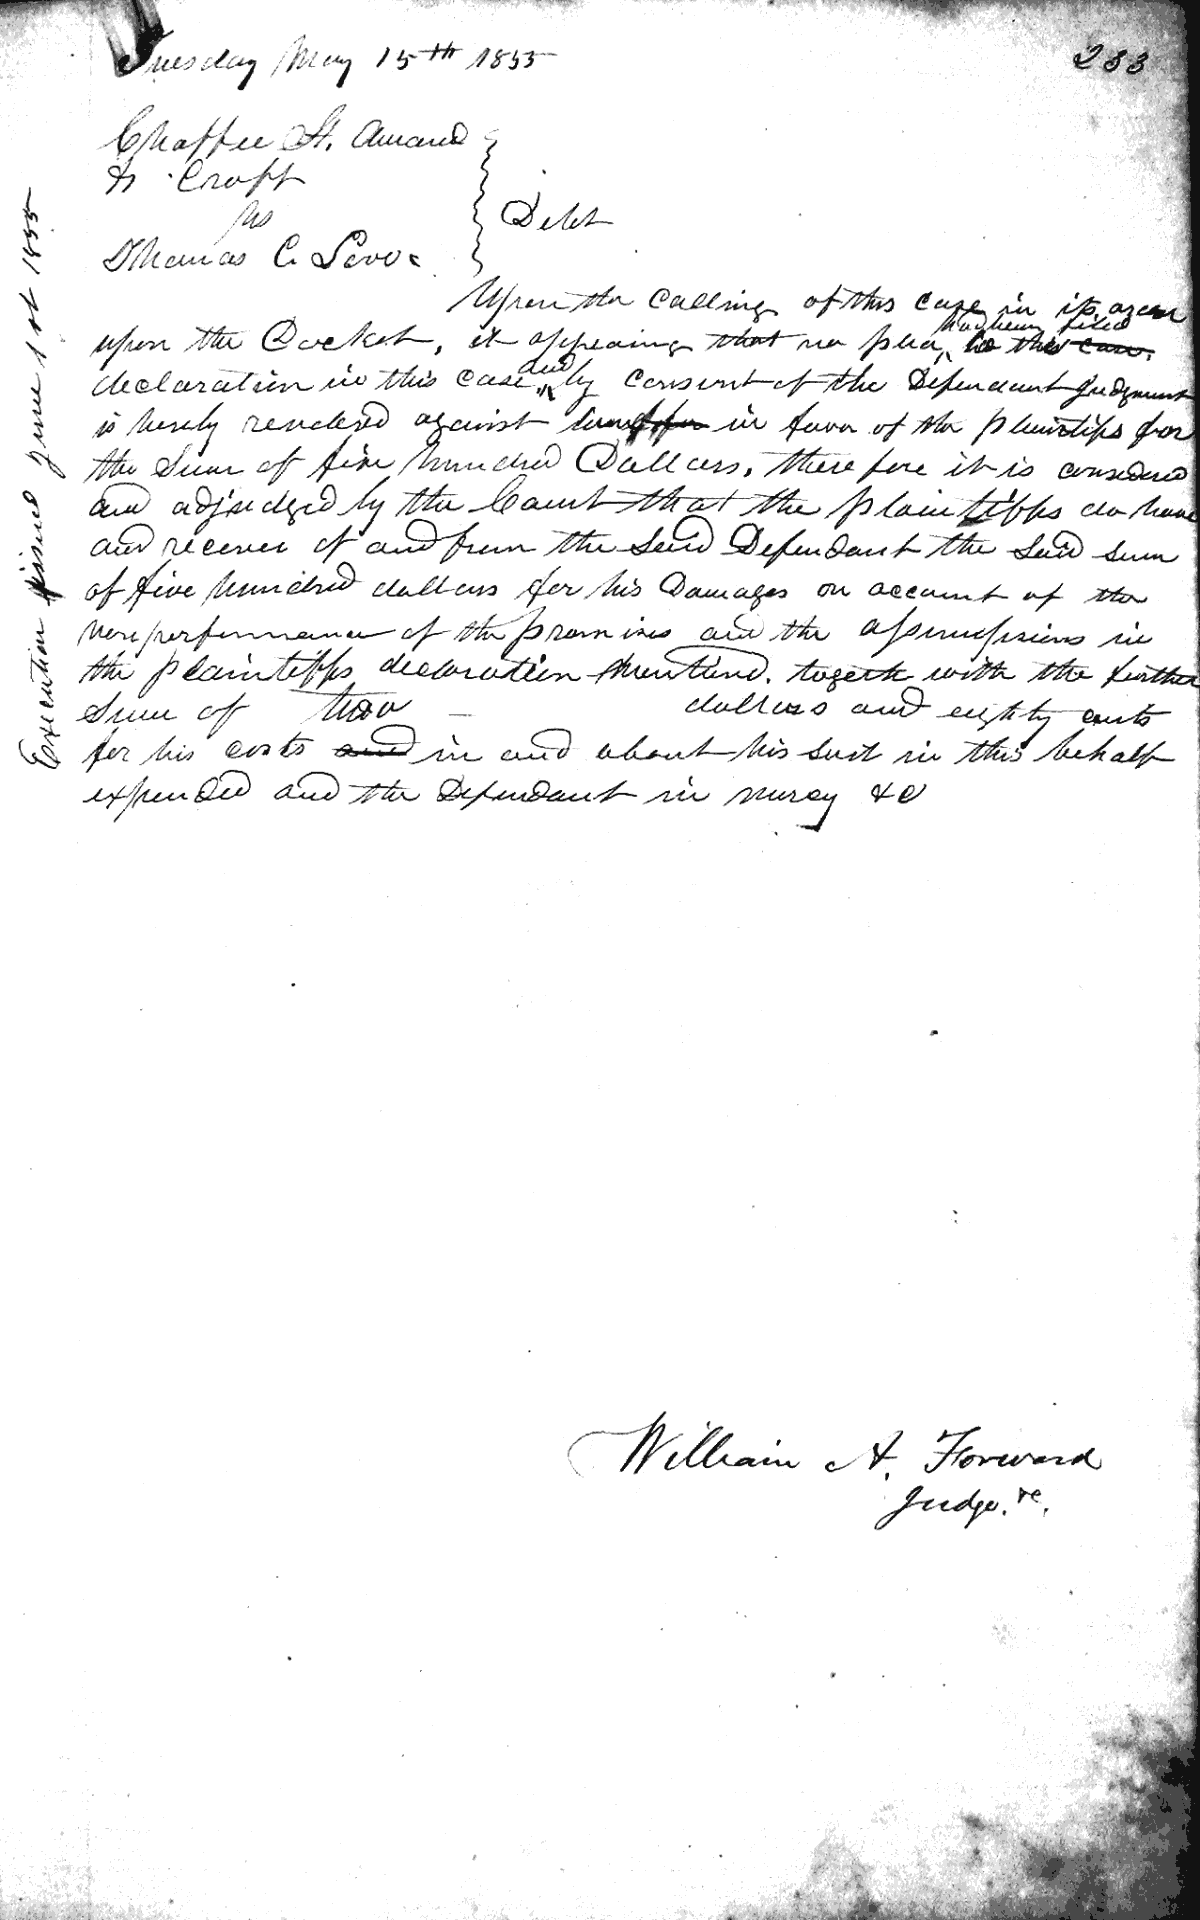 Tuesday May 15th 1855
233
Chaffee St. Amand
& Croft
vs
Thomas C. Love
Debt
Execution issued June 1st 1855
Upon the calling of this case in its order
upon the Docket, it appearing that no plea has been filed to the case.
declaration in this case and by consent of the Defendant Judgment
is hereby rendered against in favor of the plaintiffs for
the Sum of five hundred Dollars, therefore it is considered
and adjudged by the Court that the plaintiffs do have
and recover of and from the said Defendant the said sum
of five hundred dollars for his Damages on account of the
non performance of the promises and the assumpsions in
the plaintiffs declaration mentiond. togeth with the further
Sum of two dollars and eighty cents
for his costs and in and about his suit in this behalf
expended and the Defendant in mercy &c
William A. Forward
Judge &c.